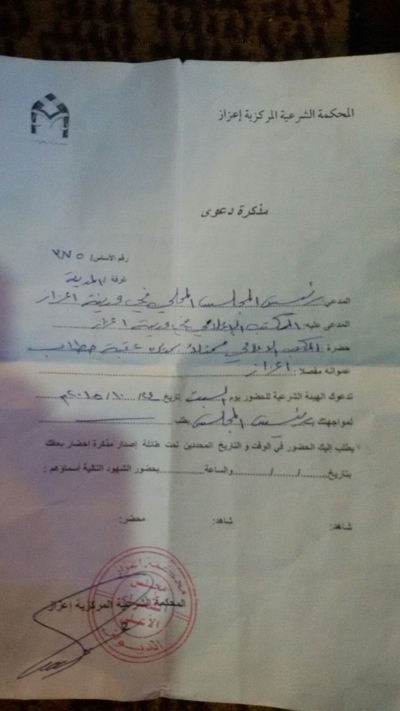 المحكمة الشرعية المركزية إعزاز
مذكرة دعوى
رقم الأساس / ٣٨٥
غرفة / المدنية
المدعي: رئيس المجلس المحلي في مدينة اعزاز
المدعى عليه: المكتب الإعلامي في مدينة اعزاز
حضرة: المكتب الإعلامي ممثلاً
عنوانه مفصلاً: اعزاز
تدعوك الهيئة الشرعية للحضور يوم السبت تاريخ ٢٠١٥/١٠/٢٤م
لمواجهتك رئيس المجلس بطلب
يطلب إليك الحضور في الوقت و التاريخ المحددين تحت طائلة إصدار مذكرة إحضار بحقك
بتاريخ / / والساعة بحضور الشهود التالية أسماؤهم :
شاهد: شاهد: محضر:
المحكمة الشرعية المركزية إعزاز
محكمة إعزاز
مجلس
القضاء
الأعلى
الديوان